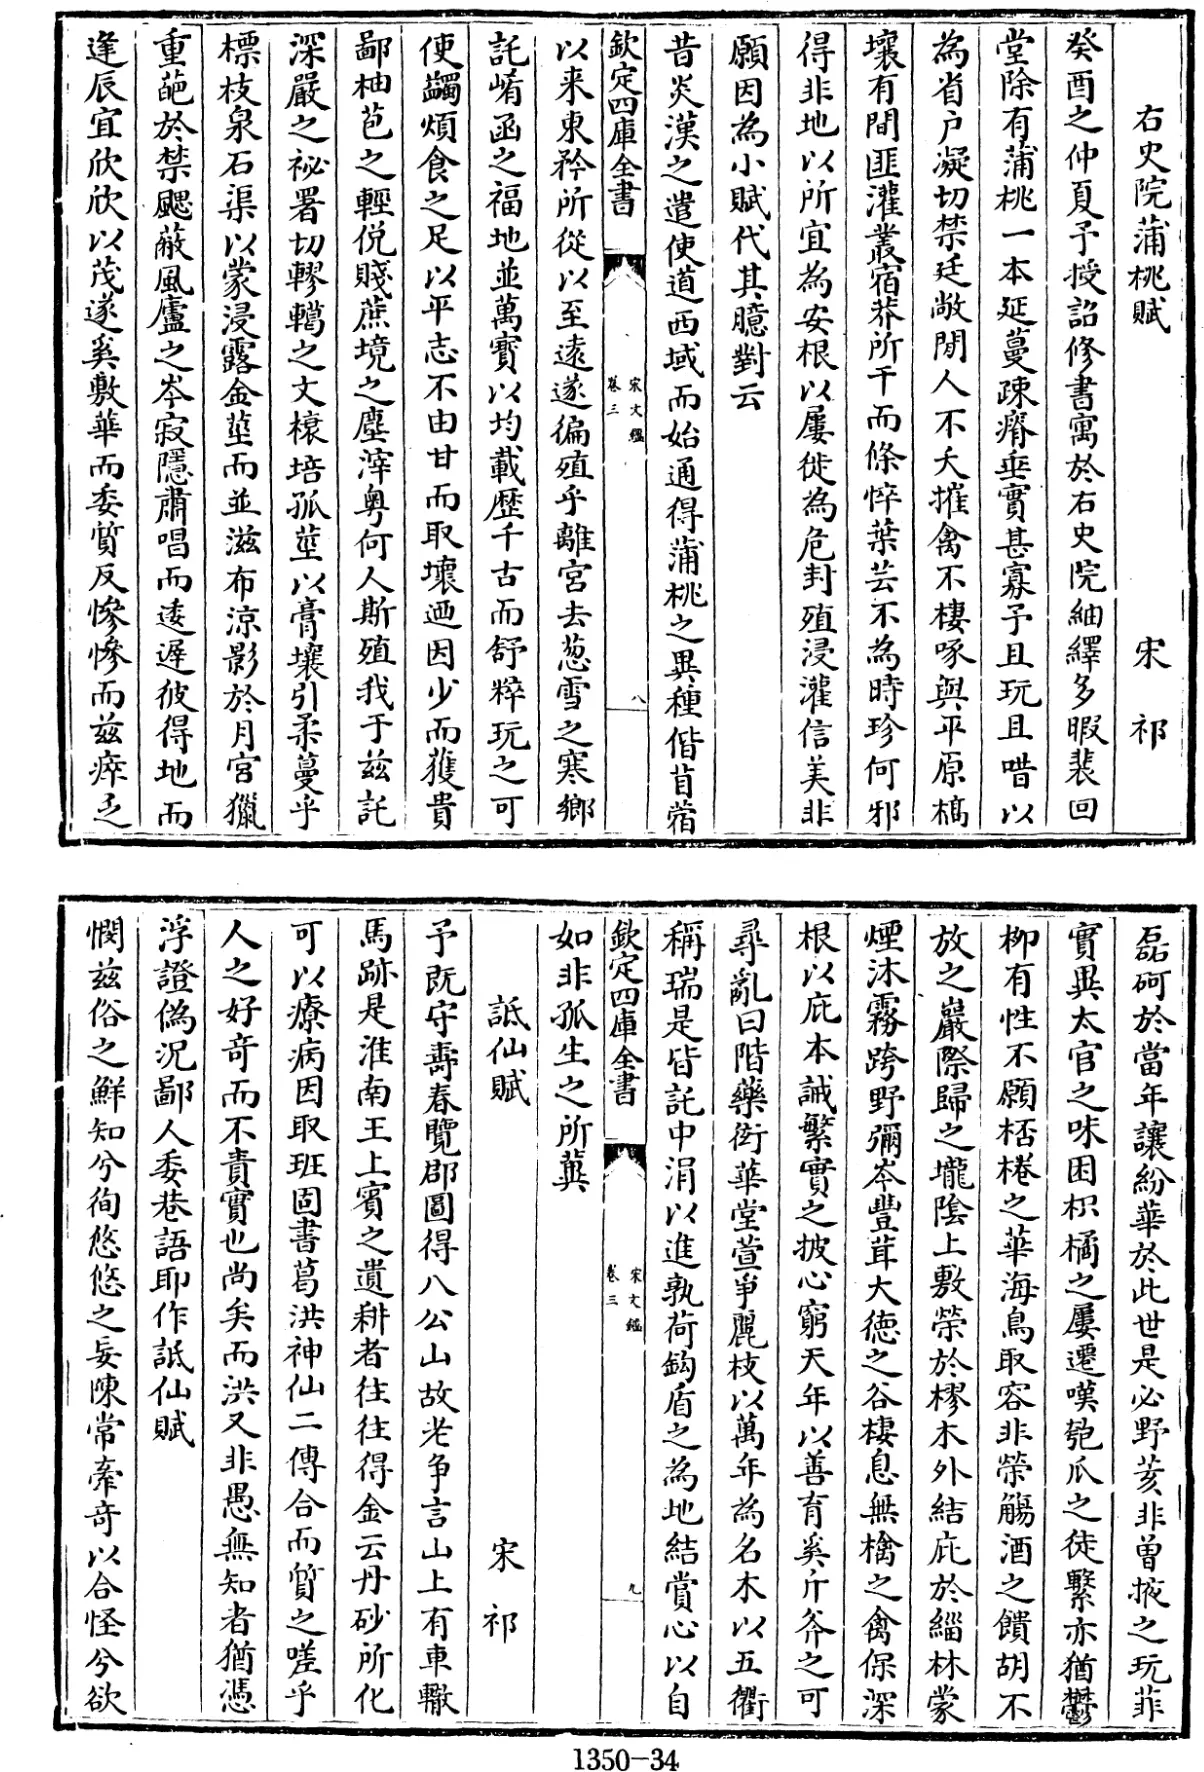 右史院蒲桃賦　宋祁
癸酉之仲夏予授詔修書寓於右史院紬繹多暇裴回
堂除有蒲桃一本延蔓疎瘠垂實甚寡予且玩且唶以
為省户凝切禁廷敞閒人不夭摧禽不棲啄與平原槁
壤有間匪灌叢宿莽所干而條悴葉芸不為時珍何邪
得非地以所宜為安根以屢徙為危封殖浸灌信美非
願因為小賦代其臆對云
昔炎漢之遣使道西域而始通得蒲桃之異種偕苜蓿
欽定四庫全書　宋文鑑　卷三　八
以来東矜所從以至逺遂徧殖乎離宫去葱雪之寒鄉
託崤函之福地並萬寳以均載歴千古而舒粹玩之可
使蠲煩食之足以平志不由甘而取壊迺因少而獲貴
鄙柚苞之輕侻賤蔗境之塵滓粤何人斯殖我于兹託
深嚴之祕署切轇轕之文榱培孤莖以膏壤引柔蔓乎
標枝泉石渠以蒙浸露金莖而並滋布涼影於月宫獵
重葩於禁颸蔽風廬之岑寂隱肅唱而逶遲彼得地而
逢辰宜欣欣以茂遂奚敷華而委質反慘慘而兹瘁乏
磊砢於當年讓紛華於此世是必野荄非曾掖之玩菲
實異太官之味困枳橘之屢遷嘆匏瓜之徒繫亦猶鬱
柳有性不願桮棬之華海鳥取容非榮觴酒之饋胡不
放之巖際歸之壠隂上敷榮於樛木外結庇於緇林蒙
煙沐霧跨野彌岑豐茸大德之谷棲息無檎之禽保深
根以庇本誠繁實之披心窮天年以善育奚斤斧之可
尋亂曰階藥衒華堂萱爭麗枝以萬年為名木以五衢
稱瑞是皆託中涓以進孰荷鈎盾之為地結賞心以自
欽定四庫全書　宋文鑑　卷三　九
如非孤生之所兾
詆仙賦　宋祁
予既守壽春覽郡圖得八公山故老争言山上有車轍
馬跡是淮南王上賓之遺耕者往往得金云丹砂所化
可以療病因取班固書葛洪神仙二傳合而質之嗟乎
人之好竒而不責實也尚矣而洪又非愚無知者猶憑
浮證偽况鄙人委巷語耶作詆仙賦
憫兹俗之鮮知兮徇悠悠之妄陳常牽竒以合怪兮欲
1350-34